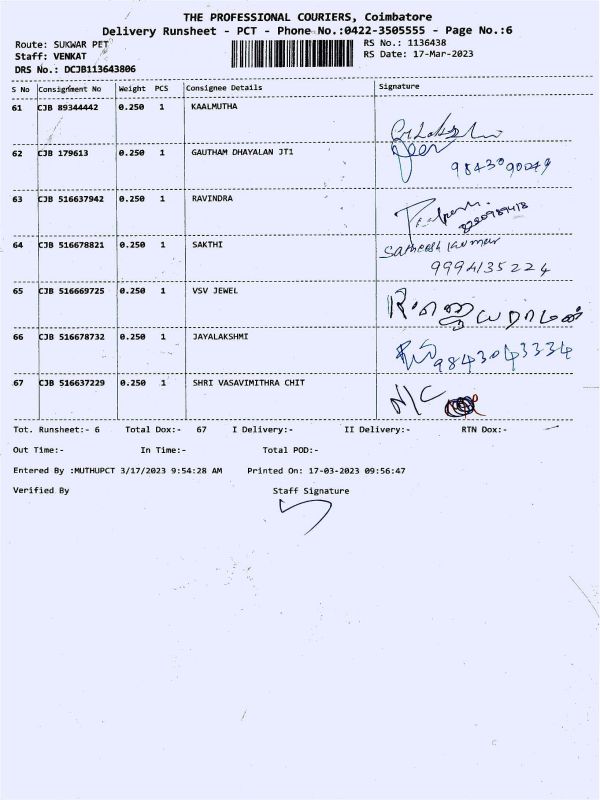 THE PROFESSIONAL COURIERS, Coimbatore
Delivery Runsheet - PCT - Phone No.:0422-3505555 - Page No.:6
Route: SUKWAR PET
RS No.: 1136438
Staff: VENKAT
RS Date: 17-Mar-2023
DRS No.: DCJB113643806
S No Consignment No Weight PCS Consignee Details Signature
61 CJB 89344442 0.250 1 KAALMUTHA
62 CJB 179613 0.250 1 GAUTHAM DHAYALAN JT1
9843090049
63 CJB 516637942 0.250 1 RAVINDRA
64 CJB 516678821 0.250 1 SAKTHI
Satheesh Kumar
9994135224
65 CJB 516669725 0.250 1 VSV JEWEL
66 CJB 516678732 0.250 1 JAYALAKSHMI
9843043334
67 CJB 516637229 0.250 1 SHRI VASAVIMITHRA CHIT
N/C
Tot. Runsheet:- 6 Total Dox:- 67 I Delivery:- II Delivery:- RTN Dox:-
Out Time:- In Time:- Total POD:-
Entered By :MUTHUPCT 3/17/2023 9:54:28 AM Printed On: 17-03-2023 09:56:47
Verified By Staff Signature